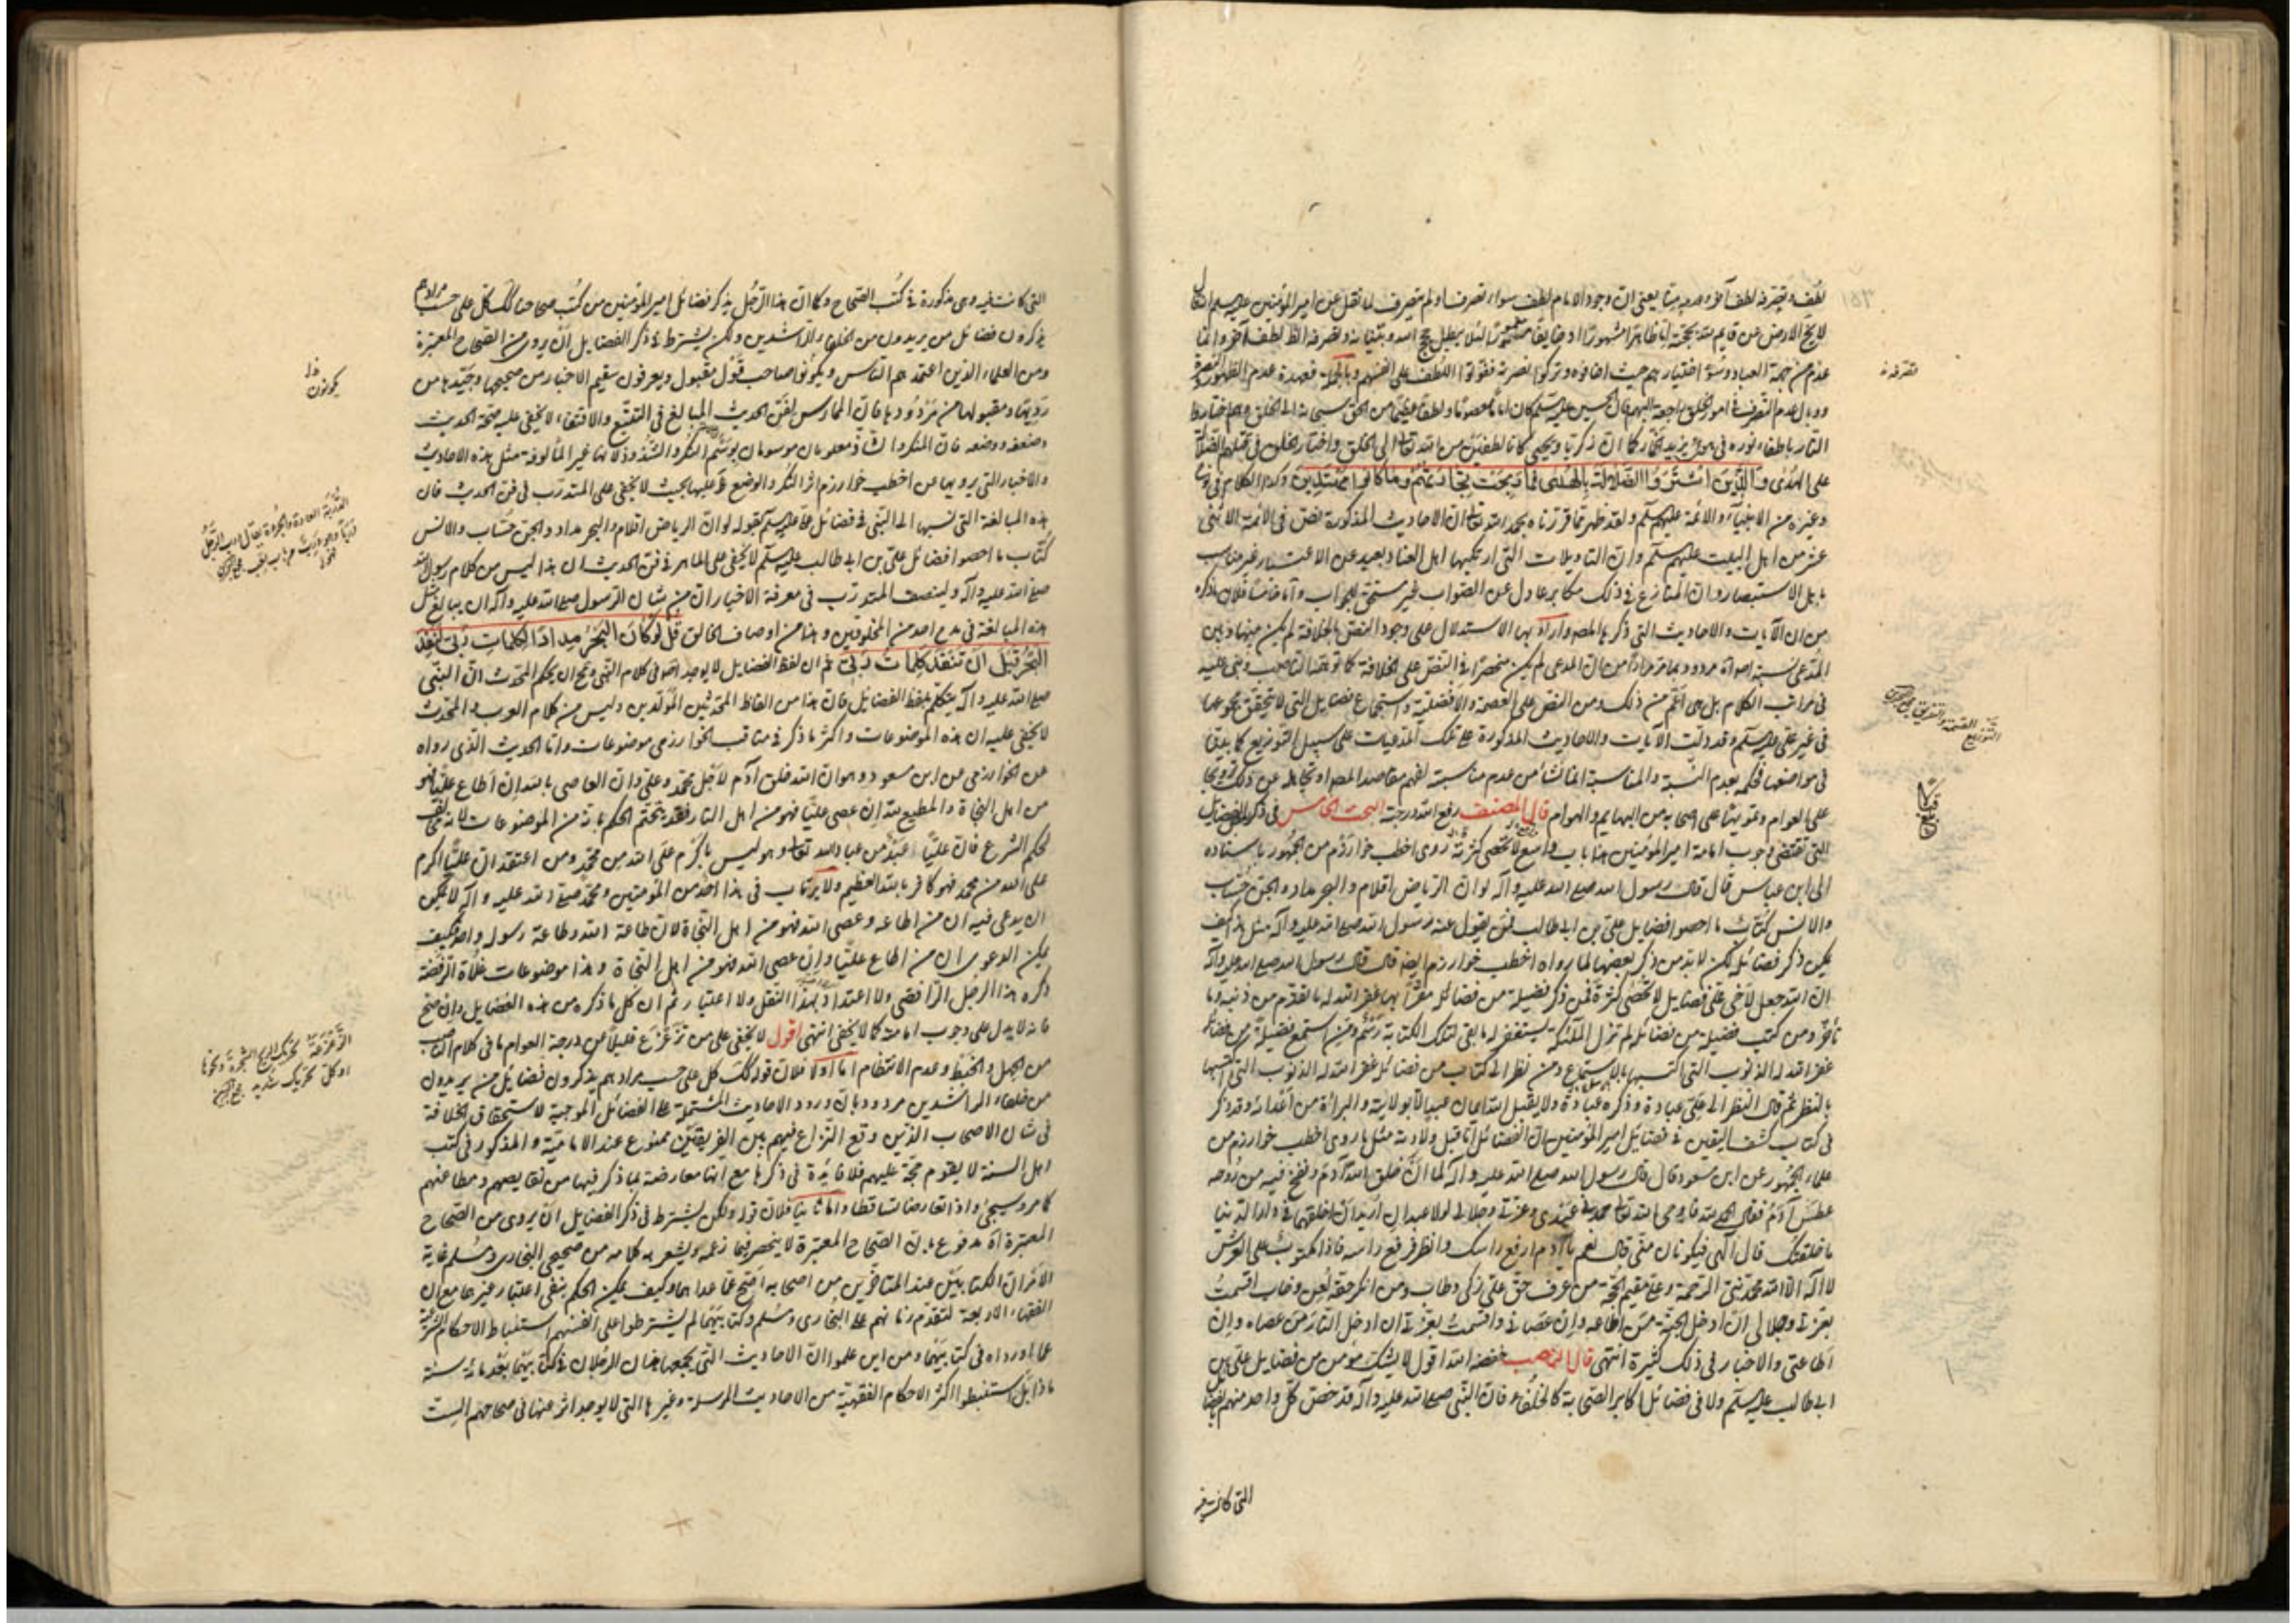 لطف وتصرفه لطف آخر وعدمه منا يعني ان وجود الامام لطف سواء تصرف او لم يتصرف لما نقل عن امير المؤمنين عليه السلم انه قال
لا يخ الارض عن قايم لله بحجة اما ظاهرا مشهورا او خايفا مغمورا لئلا يبطل حجج الله وبيناته وتصرفه الظ لطف آخر وانما
عدم من جهة العباد وسوء اختيارهم حيث اخافوه وتركوا نصرته ففوتوا اللطف على انفسهم وبالجملة فعهدة عدم الظهور والنصرة
ووبال عدم التصرف في امور الخلق راجعة اليهم فان الحسين عليه السلم كان اماما معصوما ولطفا عظيما من الحق سبحانه الى الخلق وهم اختاروا
النار باطفاء نوره في هوى يزيد الخمار كما ان زكريا ويحيى كانا لطفين من الله تعالى الى الخلق واختار الخلق في قتلهم الضلالة
على الهدى والذين اشتروا الضلالة بالهدى فما ربحت تجارتهم وما كانوا مهتدين وكذا الكلام في
وغيره من الانبياء والائمة عليهم السلم ولقد ظهر بما قررناه بحمد الله تعالى ان الاحاديث المذكورة نص في الائمة الاثنى
عشر من اهل البيت عليهم السلم وان التاويلات التي ارتكبها اهل العناد بعيد عن الاعتبار غير مناسب
باهل الاستبصار وان المنازع في ذلك مكابر عادل عن الصواب غير مستحق للجواب واما خامسا فلان ما ذكره
من ان الآيات والاحاديث التي ذكرها المصـ واراد بها الاستدلال على وجود النص بالخلافة لم يكن منها وبين
المدعى نسبة اصلا مردود بما مر مرارا من ان المدعى لم يكن منحصرا في النص على الخلافة كما توهمه الناصب وبنى عليه
في مراتب الكلام بل هي اعم من ذلك ومن النص على العصمة والافضلية واستجماع فضايل التي لا يتحقق مجموعها
في غير علي عليه السلم وقد دلت الآيات والاحاديث المذكورة على تلك المدعيات على سبيل التوزيع كما بينا
في مواضعها فحكمه بعدم النسبة والمناسبة انما نشأ من عدم مناسبة لفهم مقاصد المصـ او تجاهله عن ذلك ترويجا
على العوام وتمويها على اصحابه من البهايم والهوام قال المصنف رفع الله درجته البحث الخامس في ذكر بعض الفضايل
التي تقتضي وجوب امامة امير المؤمنين هذا باب واسع لا يحصى كثرة روى اخطب خوارزم من الجمهور باسناده
الى ابن عباس قال قال رسول الله صلى الله عليه وآله لو ان الرياض اقلام والبحر مداد والجن حساب
والانس كتاب ما احصوا فضايل علي بن ابي طالب فمن يقول عنه رسول الله صلى الله عليه وآله مثل هذا كيف
يمكن ذكر فضائله لكن لابد من ذكر بعضها لما رواه اخطب خوارزم ايضه قال قال رسول الله صلى الله عليه وآله
ان الله جعل لاخي علي فضايل لا تحصى كثرة فمن ذكر فضيلة من فضائله مقرا بها غفر الله له ما تقدم من ذنبه وما
تأخر ومن كتب فضيلة من فضائله لم تزل الملائكة يستغفر له ما بقي لتلك الكتابة رسم ومن استمع فضيلة من فضائله
غفر الله له الذنوب التي اكتسبها بالاستماع ومن نظر الى كتاب من فضائله غفر الله له الذنوب التي اكتسبها
بالنظر ثم قال النظر الى علي عبادة وذكره عبادة ولا يقبل الله ايمان عبد الا بولايته والبراءة من اعدائه وقد ذكر
في كتاب كشف اليقين في فضائل امير المؤمنين ان الفضائل اما قبل ولادته مثل ما روى اخطب خوارزم من
علماء الجمهور عن ابن مسعود قال قال رسول الله صلى الله عليه وآله لما ان خلق الله آدم ونفخ فيه من روحه
عطس آدم فقال الحمد لله فاوحى الله تعالى حمدني عبدي وعزتي وجلالي لولا عبدان اريد ان اخلقهما في دار الدنيا
ما خلقتك قال آلهي فيكونان مني قال نعم يا آدم ارفع راسك وانظر فرفع راسه فاذا مكتوب على العرش
لا اله الا الله محمد نبي الرحمة وعلي مقيم الحجة من عرف حق علي زكى وطاب ومن انكر حقه لعن وخاب اقسمت
بعزتي وجلالي ان ادخل الجنة من اطاعه وان عصاني واقسمت بعزتي ان ادخل النار من عصاه وان
اطاعني والاخبار في ذلك كثيرة انتهى قال الناصب خفضه الله اقول لا يشك مؤمن من فضايل علي بن
ابي طالب عليه السلم ولا في فضائل اكابر الصحابة كالخلفاء فان النبي صلى الله عليه وآله قد خص كل واحد منهم بفضائل
التي كانت فيه
تصرفه
التوزيع القسمة والتفريق
التي كانت فيه وهي مذكورة في كتب الصحاح وكما ان هذا الرجل يذكر فضائل امير المؤمنين من كتب صحاحنا كذلك كل على حسب مرادهم
يذكرون فضائل من يريدون من الخلفاء الراشدين ولكن يشترط في ذكر الفضايل ان يروى من الصحاح المعتبرة
ومن العلماء الذين اعتمدهم الناس ويكونوا صاحب قول مقبول ويعرفون سقيم الاخبار من صحيحها وجيدها من
رديها ومقبولها من مردودها فان الممارس لفن الحديث المبالغ في التتبع والاقتفاء لا يخفى عليه صحة الحديث
وضعفه ووضعه فان المنكر والشاذ معلومان موسومان بوسم النكر والشذوذ لانها غير المألوفة مثل هذه الاحاديث
والاخبار التي يرويها عن اخطب خوارزم اثر النكر والوضع عليها بحيث لا يخفى على المتدرب في فن الحديث فان
هذه المبالغة التي نسبها الى النبي في فضائل علي عليه السلم بقوله لو ان الرياض اقلام والبحر مداد والجن حساب والانس
كتاب ما احصوا فضائل علي بن ابي طالب عليه السلم لا يخفى على الماهر في فن الحديث ان هذا ليس من كلام رسول الله
صلى الله عليه وآله ولينصف المتدرب في معرفة الاخبار ان من شان الرسول صلى الله عليه وآله ان يبالغ مثل
هذه المبالغة في مدح احد من المخلوقين وهذا من اوصاف الخالق قل لو كان البحر مدادا لكلمات ربي لنفد
البحر قبل ان تنفد كلمات ربي ثم ان لفظ الفضايل لا يوجد في كلام النبي ومح ان يحكم المحدث ان النبي
صلى الله عليه وآله يتكلم بلفظ الفضايل فان هذا من الفاظ المحدثين المولدين وليس من كلام العرب والمحدث
لا يخفى عليه ان هذه الموضوعات واكثر ما ذكر في مناقب الخوارزمي موضوعات واما الحديث الذي رواه
عن الخوارزمي عن ابن مسعود وهو ان الله خلق آدم لاجل محمد وعلي وان العاصي بالله ان اطاع عليا فهو
من اهل النجاة والمطيع لله ان عصى عليا فهو من اهل النار فقد يتحتم الحكم بانه من الموضوعات لانه مخالف
لحكم الشرع فان عليا عبد من عباد الله تعالى وهو ليس باكرم على الله من محمد ومن اعتقد ان عليا اكرم
على الله من محمد فهو كافر بالله العظيم ولا يرتاب في هذا احد من المؤمنين ومحمد صلى الله عليه وآله لا يمكن
ان يدعى فيه ان من اطاعه وعصى الله فهو من اهل النجاة لان طاعة الله وطاعة رسوله واحد فكيف
يمكن الدعوى ان من اطاع عليا وان عصى الله فهو من اهل النجاة وهذا موضوعات غلاة الرفضة
ذكره هذا الرجل الرافضي ولا اعتداد بهذا النقل ولا اعتبار ثم ان كل ما ذكره من هذه الفضايل وان صح
فانه لا يدل على وجوب امامته كما لا يخفى انتهى اقول لا يخفى على من تزعزع قليلا عن درجة العوام ما في كلام الناصب
من الجهل والخبط وعدم الانتظام اما اولا فلان قوله كذلك كل على حسب مرادهم يذكرون فضائل من يريدون
من خلفاء الراشدين مردود بان ورود الاحاديث المشتملة على الفضائل الموجبة لاستحقاق الخلافة
في شان الاصحاب الذين وقع النزاع فيهم بين الفريقين ممنوع عند الامامية والمذكور في كتب
اهل السنة لا يقوم حجة عليهم فلا فايدة في ذكرها مع انها معارضة بما ذكر فيها من نقايصهم ومطاعنهم
كما مر وسيجيء واذا تعارضا تساقطا واما ثانيا فلان قوله ولكن يشترط في ذكر الفضايل ان يروى من الصحاح
المعتبرة اه مدفوع بان الصحاح المعتبرة لا ينحصر فيما زعمه ويشعر به كلامه من صحيحي البخاري ومسلم غاية
الامر ان الكتابين عند المتاخرين من اصحابه اصح عما عداهما وكيف يمكن الحكم بنفي اعتبار غيرها مع ان
الفقهاء الاربعة لتقدم زمانهم على البخاري ومسلم وكتابيهما لم يشترطوا على انفسهم استنباط الاحكام الشرعية
عما اورداه في كتابيهما ومن اين علموا ان الاحاديث التي يجمعها هذان الرجلان في كتابيهما بعد مائة سنة
ماذا بل استنبطوا اكثر الاحكام الفقهية من الاحاديث المرسلة وغيرها التي لا يوجد اثر منها في صحاحهم الست
يكونون خل
الدربة العادة والجرأة
الزعزعة تحريك الريح الشجرة ونحوها
او كل تحريك شديد